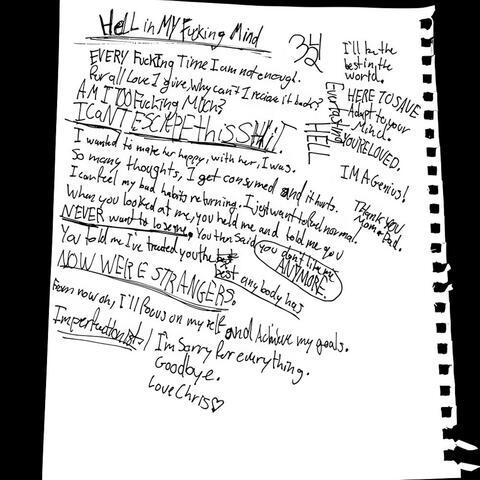 HELL in MY Fucking Mind
EVERY Fucking Time I am not enough.
For all Love I give, Why can't I recieve it back?
AM I TOO Fucking MUCH?
I CANT ESCAPE this SHIT
I wanted to make her happy, with her, I was.
So many thoughts, I get consumed and it hurts.
I can feel my bad habits returning. I just want to feel normal.
When you looked at me, you held me and told me you
NEVER want to lose me. You then said you don't like me
ANYMORE.
You told me I've treated you the best
best anybody has
NOW WERE STRANGERS.
From now on, I'll focus on my self and Achieve my goals.
Imperfections
I'm sorry for everything.
Goodbye.
Love Chris ♡
342
I'll be the
best in the
world.
HERE TO SAVE
Adapt to your
Mind.
YOURE LOVED.
HELL
I'M A Genius!
Thank you
Mom & Dad.